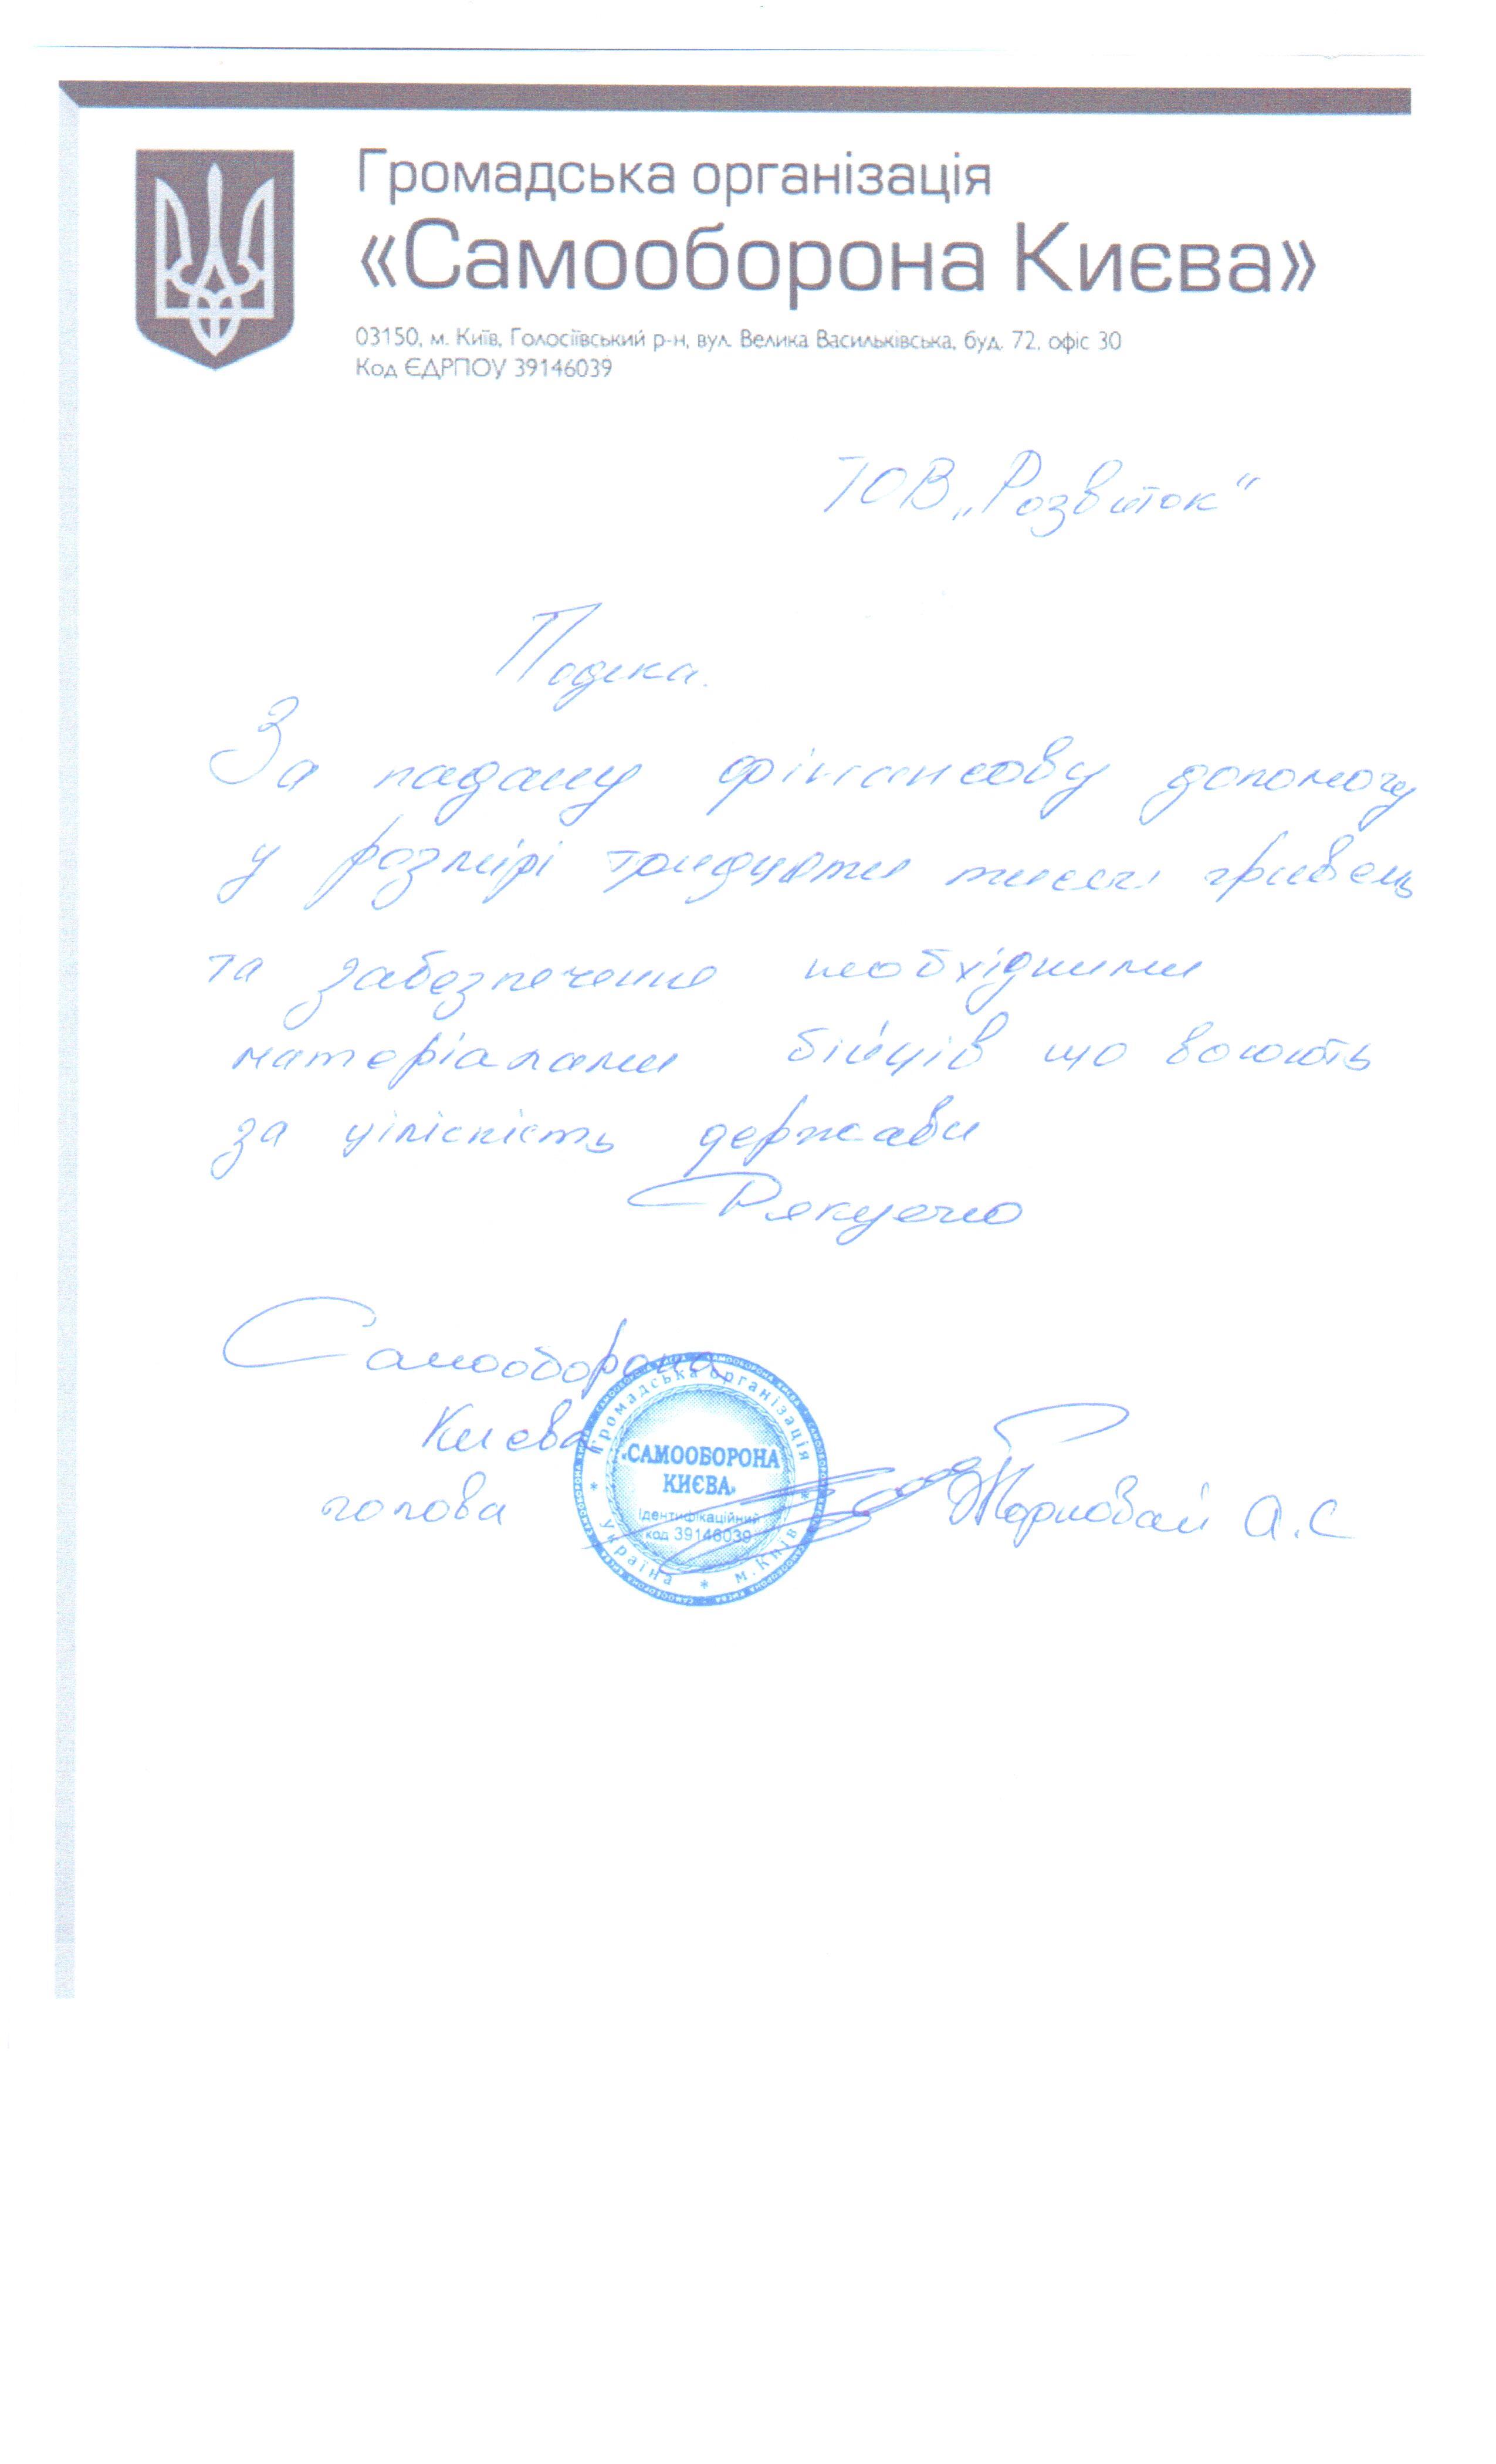 Громадська організація
«Самооборона Києва»
03150, м. Київ, Голосіївський р-н, вул. Велика Васильківська, буд. 72, офіс 30
Код ЄДРПОУ 39146039
ТОВ „Розвиток“
Подяка.
За надану фінансову допомогу
у розмірі тридцяти тисяч гривень
та забезпечення необхідними
матеріалами бійців що воюють
за цілісність держави
Дякуємо
Самооборона
Києва
голова
А.С
Громадська організація
«САМООБОРОНА
КИЄВА»
Ідентифікаційний
код 39146039
* Україна * м. Київ *